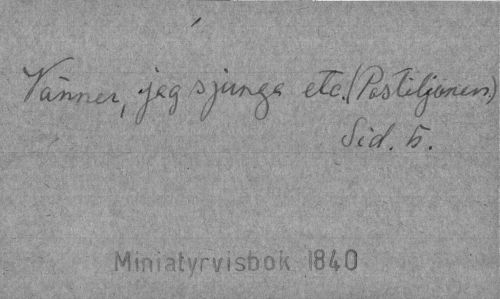 Vänner, jag sjunga etc. (Postiljonen)
Sid. 5.
Miniatyrvisbok 1840